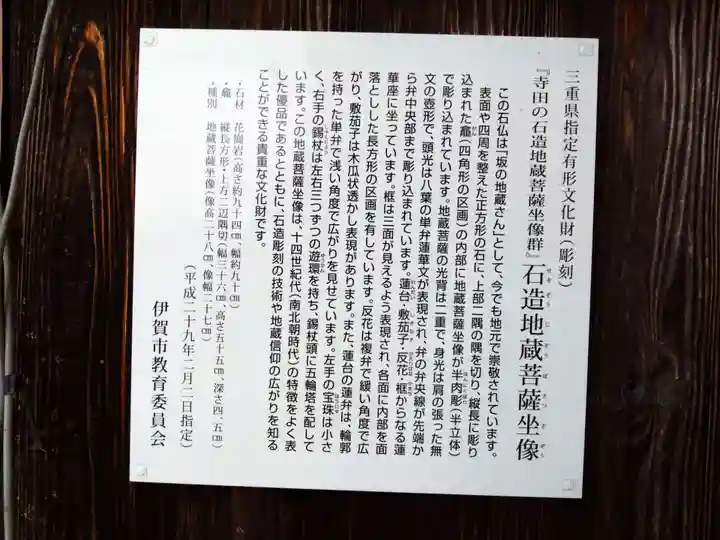 三重県指定有形文化財(彫刻)
『寺田の石造地蔵菩薩坐像群』石造地蔵菩薩坐像
せきぞうじぞうぼさつざぞう
この石仏は『坂の地蔵さん』として、今でも地元で崇敬されています。
表面や四周を整えた正方形の石に、上部二隅の隅を切り、縦長に彫り
込まれた龕(四角形の区画)の内部に地蔵菩薩坐像が半肉彫(半立体)
で彫り込まれています。地蔵菩薩の光背は二重で、身光は肩の張った無
文の壺形で、頭光は八葉の単弁蓮華文が表現され、弁の中央線が先端か
ら弁中央部まで彫り込まれています。蓮台・敷茄子・反花・框からなる蓮
華座に坐っています。框は三面が見えるよう表現され、各面に内部を面
落としした長方形の区画を有しています。反花は複弁で緩い角度で広
がり、敷茄子は木瓜状透かし表現があります。また、蓮台の蓮弁は、輪郭
を持った単弁で浅い角度で広がりを見せています。左手の宝珠は小さ
く、右手の錫杖は左右三つずつの遊環を持ち、錫杖頭に五輪塔を配して
います。この地蔵菩薩坐像は、十四世紀代(南北朝時代)の特徴をよく表
した優品であるとともに、石造彫刻の技術や地蔵信仰の広がりを知る
ことができる貴重な文化財です。
・石材 花崗岩(高さ約九十四㎝、幅約九十㎝)
・龕 縦長方形・上方二辺隅切(幅三十六㎝、高さ五十五㎝、深さ四・五㎝)
・種別 地蔵菩薩坐像(像高二十八㎝、像幅二十七㎝)
(平成二十九年二月二日指定)
伊賀市教育委員会